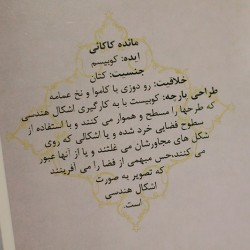 مائده کاکائی
ایده: کوبیسم
جنسیت: کتان
خلاقیت: رو دوزی با کاموا و نخ عمامه
طراحی پارچه: کوبیست با به کارگیری اشکال هندسی
که طرحها را مسطح و هموار می کنند و یا استفاده از
سطوح فضایی خرد شده و یا اشکالی که روی
شکل های مجاورشان می غلتند و یا از آنها عبور
می کنند،حس مبهمی از فضا را می آفرینند
که تصویر به صورت
اشکال هندسی
است.